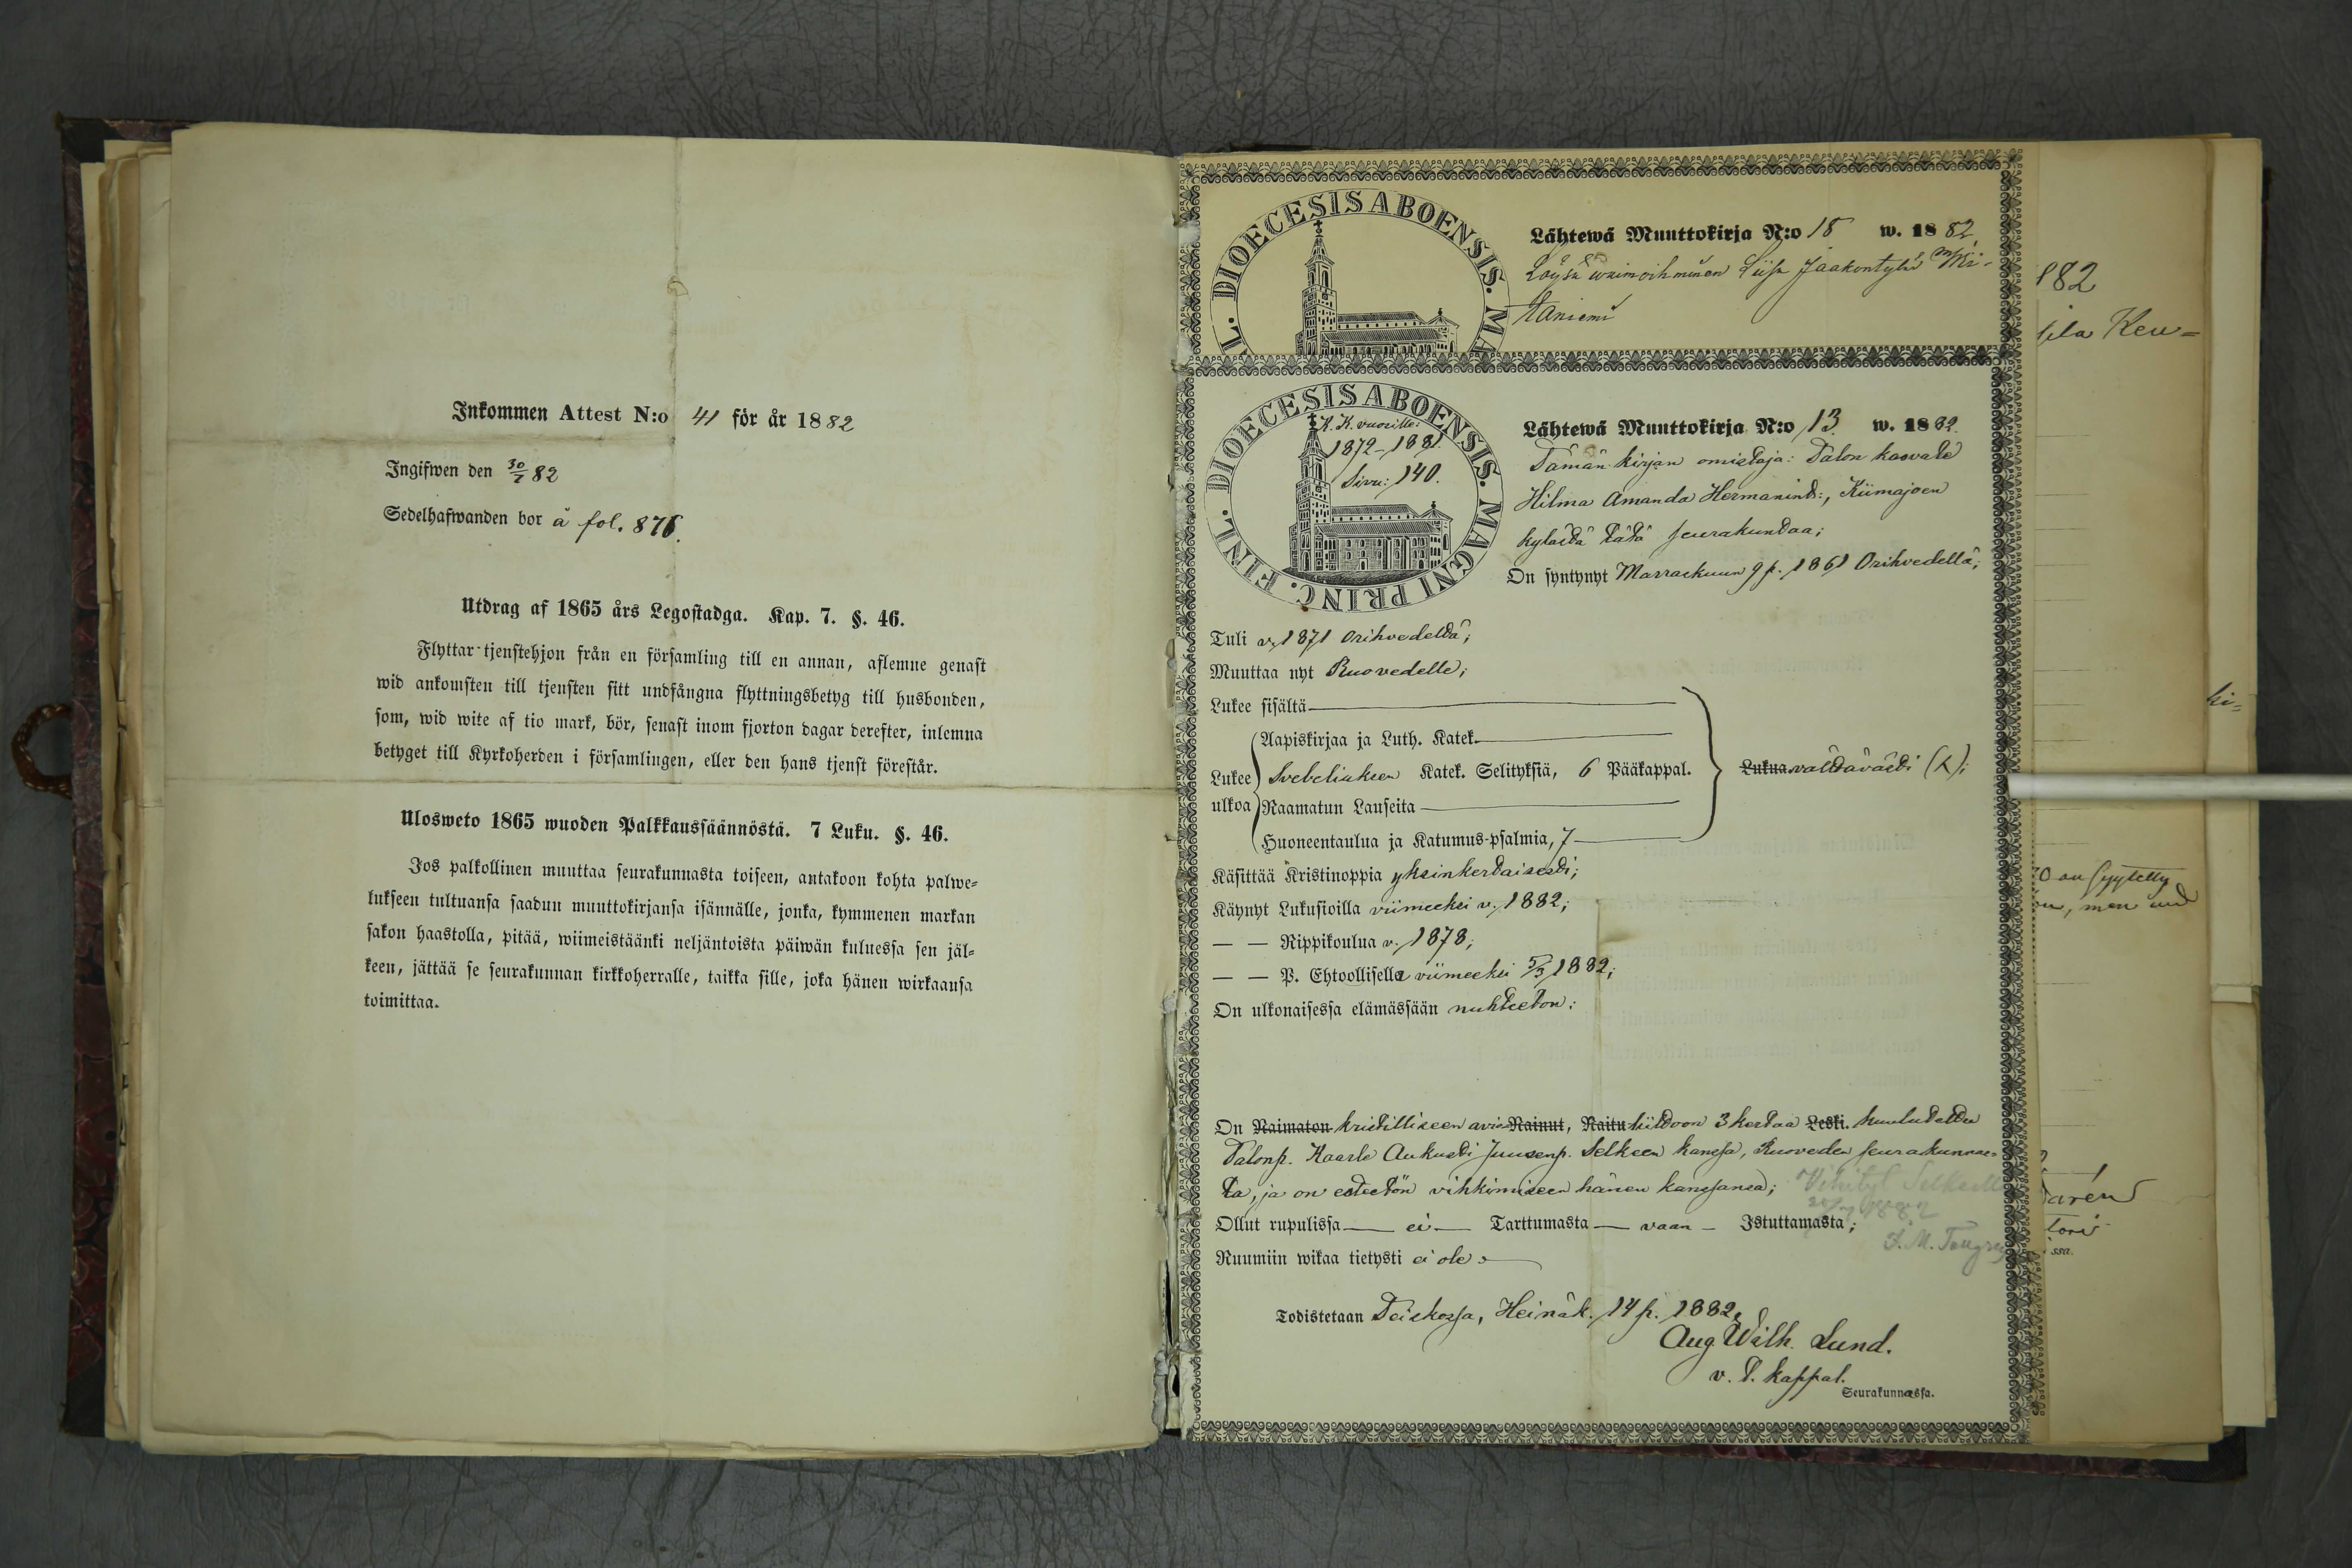 Inkommen Attest N:o 41 för år 1882
Ingifwen den 30/7 82
Sedelhafwanden bor å fol. 876.
Utdrag af 1865 års Legostadga. Kap. 7. §. 46.
Flyttar tjenstehjon från en församling till en annan, aflemne genast
wid ankomsten till tjensten sitt undfångna flyttningsbetyg till husbonden,
som, wid wite af tio mark, bör, senast inom fjorton dagar derefter, inlemna
betyget till Kyrkoherden i församlingen, eller den hans tjenst förestår.
Ulosweto 1865 wuoden Palkkaussäännöstä. 7 Luku. §. 46.
Jos palkollinen muuttaa seurakunnasta toiseen, antakoon kohta palwe-
lukseen tultuansa saadun muuttokirjansa isännälle, jonka, kymmenen markan
sakon haastolla, pitää, wiimeistäänki neljäntoista päiwän kuluessa sen jäl-
keen, jättää se seurakunnan kirkkoherralle, taikka sille, joka hänen wirkaansa
toimittaa.
DIOECESIS ABOENSIS. MA
Lähtewä Muuttokirja N:o 18 w. 1882
Löysä waimoihminen Liisa Jaakontytär
taniemi
DIOECESIS ABOENSIS. MAGNI PRINC. FINL.
K. K. vuosille:
1872-1881.
Sivu: 140.
Lähtewä Muuttokirja N:o 13 w. 1882.
Tämän kirjan omistaja: Talon kasvate
Hilma Amanda Hermanint:, Kiimajoen
kylästä tätä seurakuntaa;
On syntynyt Marraskuun 9 p. 1861 Orihvedellä;
Tuli v. 1871 Orihvedeltä;
Muuttaa nyt Ruovedelle;
Lukee sisältä
Aapiskirjaa ja Luth. Katek.
Lukee ulkoa Svebeliuksen Katek. Selityksiä, 6 Pääkappal.
Lukua välttävästi (X);
Raamatun Lauseita
Huoneentaulua ja Katumus-psalmia, 7
Käsittää Kristinoppia yksinkertaisesti;
Käynyt Lukusioilla viimeeksi v. 1882;
— — Rippikoulua v. 1878;
— — P. Ehtoollisella viimeeksi 5/3 1882;
On ulkonaisessa elämässään nuhteeton;
On Naimaton kristilliseen avio Nainut, Naitu liittoon 3 kertaa Leski. kuulutettu
Talonp. Kaarle Aukusti Juusenp. Selkeen kanssa, Ruoveden seurakunnas-
ta, ja on esteetön vihkimiseen hänen kanssansa; Vihityt
1882
Ollut rupulissa — ei — Tarttumasta — vaan — Istuttamasta;
J. M.
Ruumiin wikaa tietysti ei ole
Todistetaan Teiskossa, Heinäk. 14 p. 1882,
Aug. Wilh. Lund.
v. t. kappal.
Seurakunnassa.
882
sila Keu=
ki=
ssa.